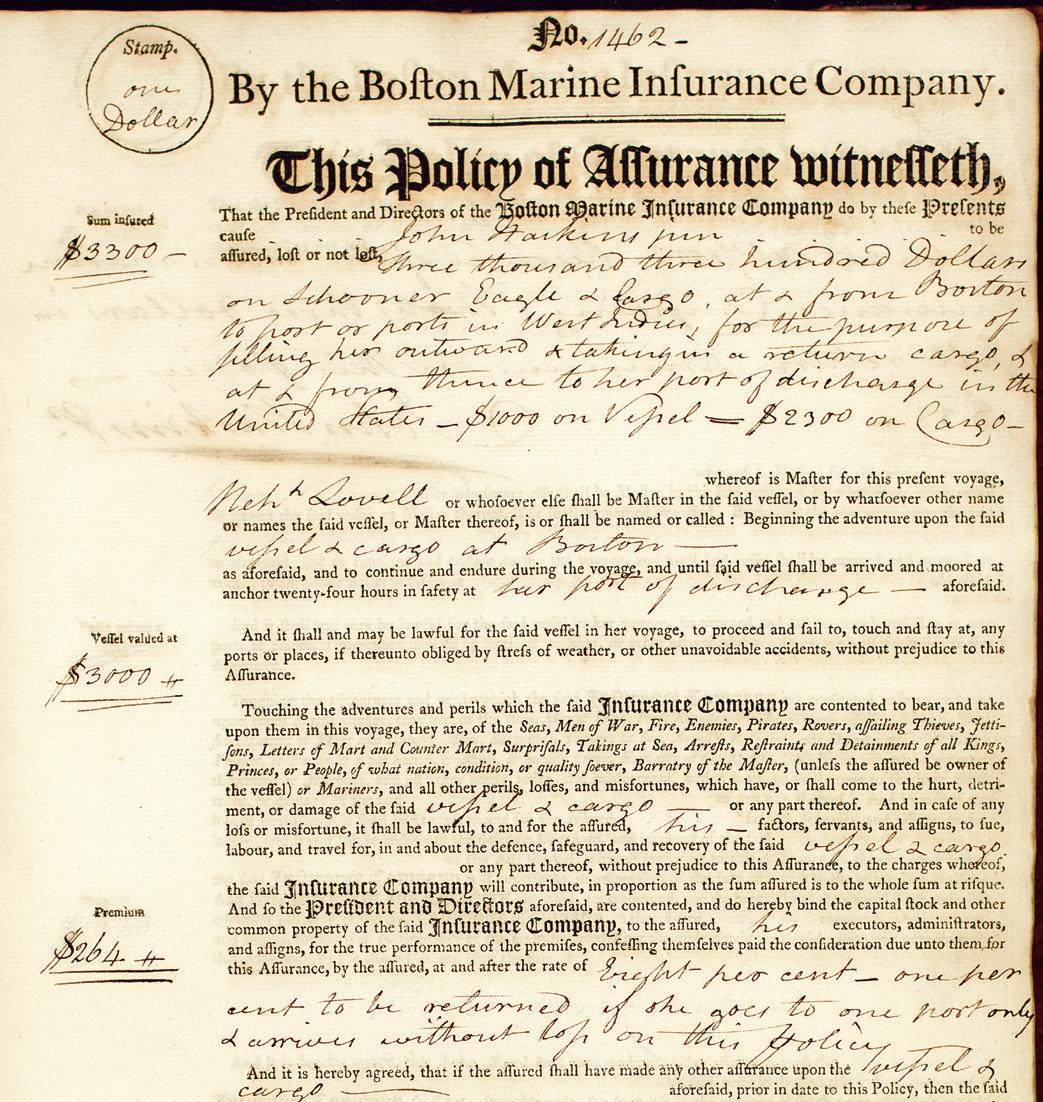 No. 1462 -
Stamp.
one
Dollar
By the Boſton Marine Inſurance Company.
This Policy of Aſſurance witneſſeth,
Sum inſured
$3300 -
That the Preſident and Directors of the Boſton Marine Inſurance Company do by theſe Preſents
cause John Harkins jun to be
aſſured, loſt or not loſt, three thousand three hundred Dollars
on Schooner Eagle & Cargo, at & from Boston
to port or ports in West Indies, for the purpose of
selling her outward & taking in a return cargo, &
at & from thence to her port of discharge in the
United States - $1000 on Veſsel = $2300 on Cargo -
whereof is Maſter for this preſent voyage,
Neh.h Lovell or whoſoever elſe ſhall be Maſter in the ſaid veſſel, or by whatſoever other name
or names the ſaid veſſel, or Maſter thereof, is or ſhall be named or called : Beginning the adventure upon the ſaid
veſsel & cargo at Boston —
as aforeſaid, and to continue and endure during the voyage, and until ſaid veſſel ſhall be arrived and moored at
anchor twenty-four hours in ſafety at her port of discharge — aforeſaid.
Veſſel valued at
$3000
And it ſhall and may be lawful for the ſaid veſſel in her voyage, to proceed and ſail to, touch and ſtay at, any
ports or places, if thereunto obliged by ſtreſs of weather, or other unavoidable accidents, without prejudice to this
Aſſurance.
Touching the adventures and perils which the ſaid Inſurance Company are contented to bear, and take
upon them in this voyage, they are, of the Seas, Men of War, Fire, Enemies, Pirates, Rovers, aſſailing Thieves, Jetti-
ſons, Letters of Mart and Counter Mart, Surpriſals, Takings at Sea, Arreſts, Reſtraints and Detainments of all Kings,
Princes, or People, of what nation, condition, or quality ſoever, Barratry of the Maſter, (unleſs the aſſured be owner of
the veſſel) or Mariners, and all other perils, loſſes, and misfortunes, which have, or ſhall come to the hurt, detri-
ment, or damage of the ſaid veſsel & cargo — or any part thereof. And in caſe of any
loſs or misfortune, it ſhall be lawful, to and for the aſſured, his — factors, ſervants, and aſſigns, to ſue,
labour, and travel for, in and about the defence, ſafeguard, and recovery of the ſaid veſsel & cargo,
or any part thereof, without prejudice to this Aſſurance, to the charges whereof,
the ſaid Inſurance Company will contribute, in proportion as the ſum aſſured is to the whole ſum at riſque.
And ſo the Preſident and Directors aforeſaid, are contented, and do hereby bind the capital ſtock and other
common property of the ſaid Inſurance Company, to the aſſured, his executors, adminiſtrators,
and aſſigns, for the true performance of the premiſes, confeſſing themſelves paid the conſideration due unto them for
Premium
$264
this Aſſurance, by the aſſured, at and after the rate of Eight per cent - one per
cent to be returned if she goes to one port only
& arrives without loſs on this policy
And it is hereby agreed, that if the aſſured ſhall have made any other aſſurance upon the veſsel &
cargo — aforeſaid, prior in date to this Policy, then the ſaid